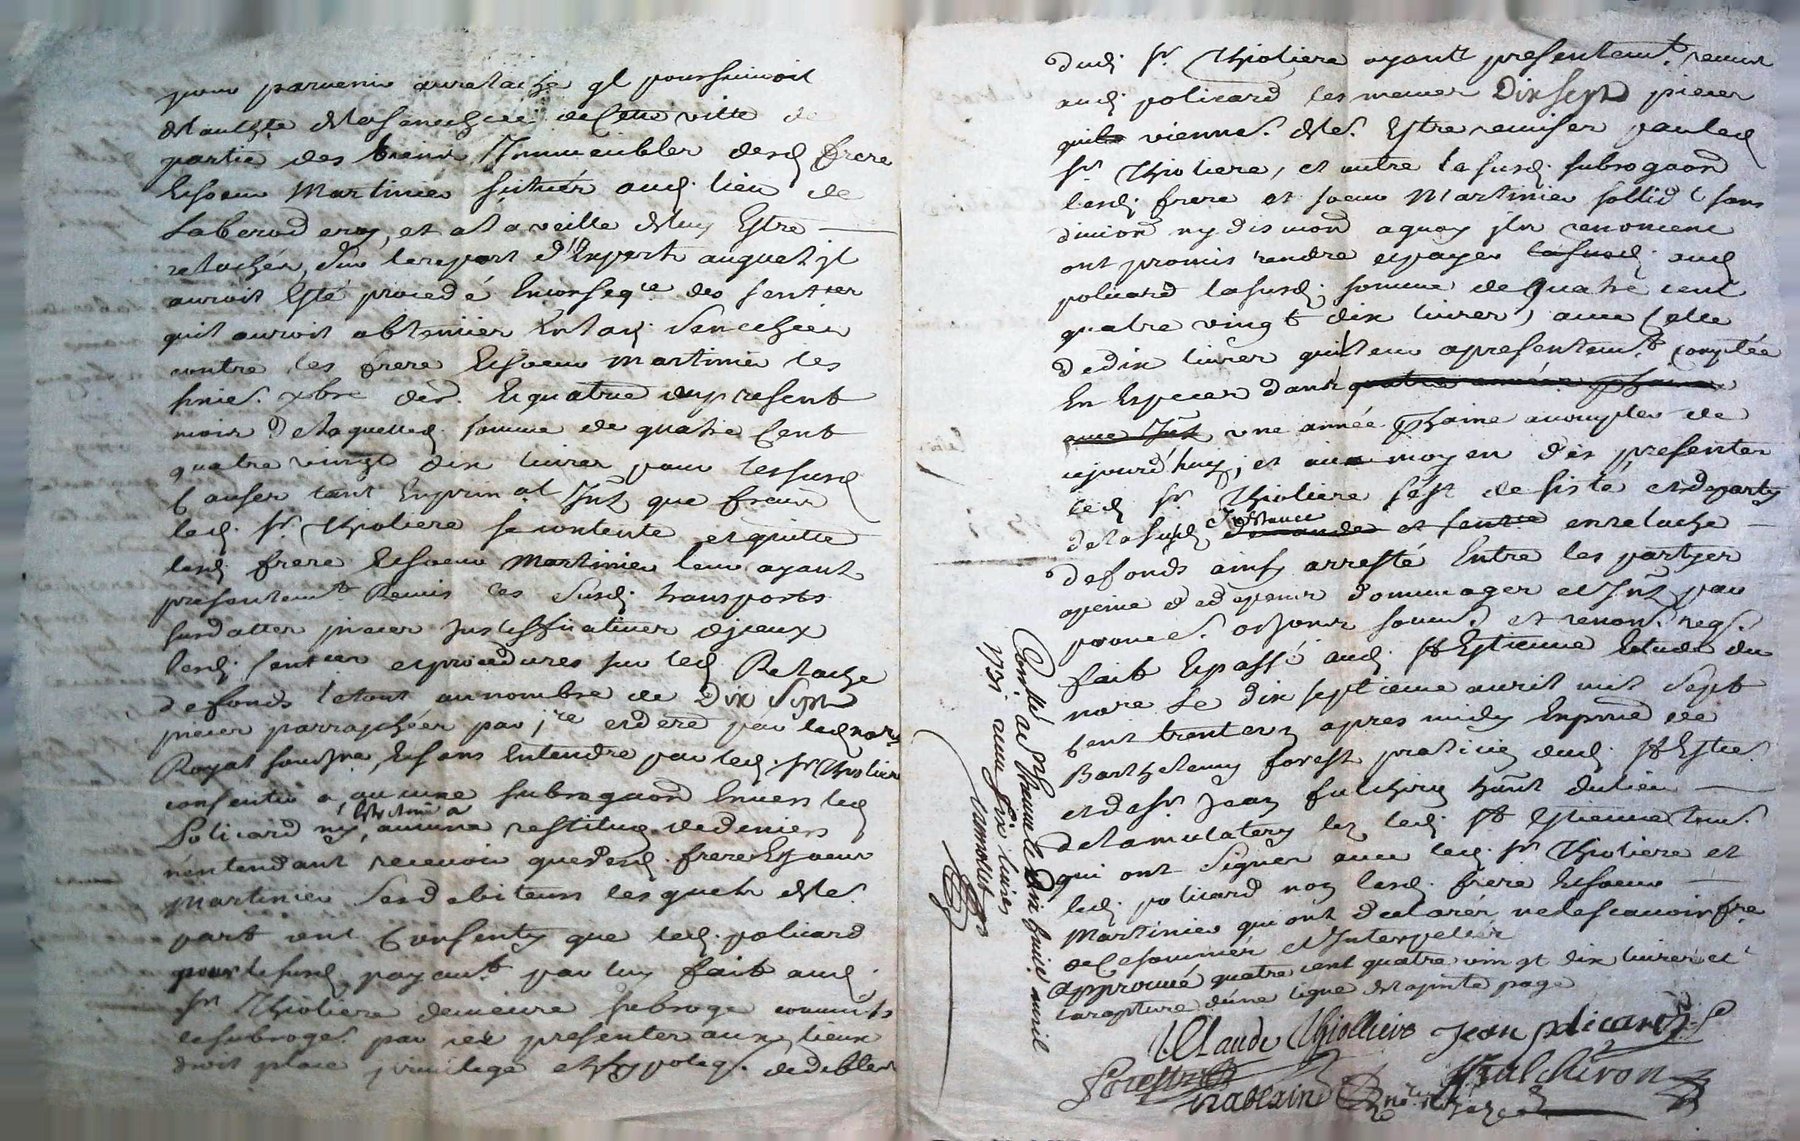 pour parvenir au relache qil poursuivoit
de laute de la senechcée de cette ville de
partie des biens Immeubles desd frere
et soeur Martinier situés aud. lieu de
Laberod ery, et a la veille de luy Estre
relachés, sur le raport d'Experts auquel jl
auroit Esté procedé En conseqce des sentces
qu'il auroit obtenües En lad. Senechcée
contre les frere Et soeur Martinier les
xbre der. Et quatre du present
mois De laquelled. somme de quatre Cent
quatre vingt dix livres pour les susd
Causes tant En prin.al Int que fraix
led. sr. Thioliere se contente et quitte
lesd. frere Et soeur Martinier leur ayant
presentemt. Remis les susd. transports
susdattes pieces Justifficatives djceux
lesd. sentces et procedures sur led Relache
de fonds le tout au nombre de Dix Sept
pieces parraphées par jre et dere par led nore
Royal soussné, Et sans Entendre par led. sr Thioliere
consentir a aucune subrogaon Envers led
Policard ny, Estre tenu a aucune restituon de deniers
n'entendant recevoir que desd. frere Et soeur
Martinier ses debiteurs lesquels de le.
part ont Consenty que led. policard
pour le susd. payemt. par luy fait aud.
sr Thioliere demeure subrogé comme ils
le subroge. par ces presentes aux lieux
droit place privilege et hypoteq. de dibler
dud. sr. Thioliere ayant presentemt. remis
aud. policard les mesmes Dix sept pieces
quil vienne. de le. Estre remises par led
sr. Thioliere, et outre la susd. subrogaon
lesd. frere et soeur Martinier sollidt sans
divion ny discuon a quoy jls renoncent
ont promis rendre et payer la susd. aud
policard la susd. somme de quatre cent
quatre vingt dix livres, avec Celle
de dix livres quil leur a presentemt. comptée
En Especes dans quatre années prochaines
avec Int une année prochaine a compter de
aujourd'huy, et au moyen des presentes
led sr. Thioliere s'est desisté et departy
de la susd. Instance demande et sentce en relache
de fonds ainsy arresté Entre les partyes
a peine de depens dommages et Int par
promes. obligeons soums. et renon. reqs.
fait Et passé aud. St Estienne Etude du
nore Le dix septieme avril mil Sept
Cent trente un apres midy En pnce de
Barthelemy forest praticien dud. St Este.
et de sr Jean fulchiron habt du lieu
de la mulatery lez led. St Estienne tms.
qui ont signés avec led. sr Thioliere et
led. policard non lesd. frere Et soeur
Martinier qui ont declarés ne le scavoir fre
de Ce sommés et Interpellés
approuvé quatre cent quatre vingt dix livres et
la rapture d'une ligne de la pnte page
Claude Thiolliere Jean policard
Forest fulchiron
Controllé a St Etienne le dix huit avril
1731 reçu six livres